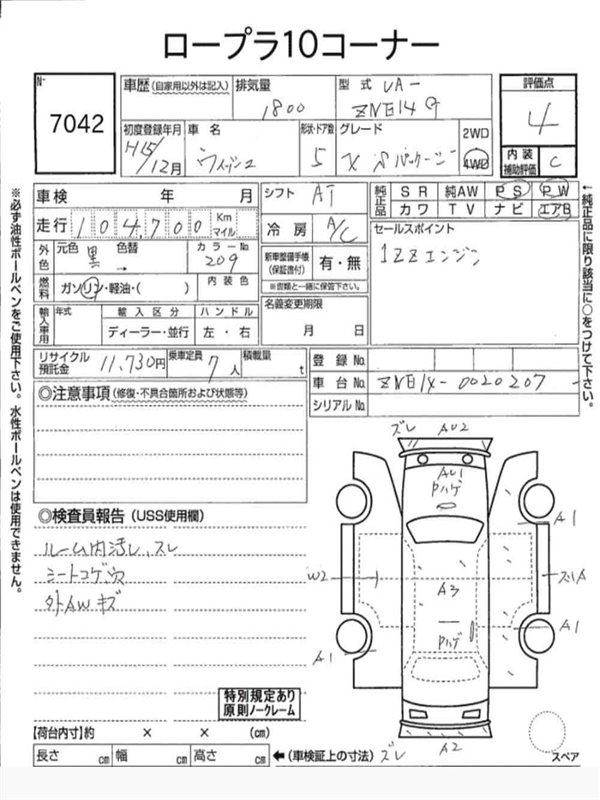 ロープラ10コーナー
N-
7042
車歴(自家用以外は記入)
排気量
1800
型式 UA-
ZNE14G
評価点
4
初度登録年月
H15/12月
車名
ウィッシュ
形状・ドア数
5
グレード
X Sパッケージ
2WD
4WD
内装補助評価 C
車検 年 月
シフト AT
純正品
SR 純AW PS PW
カワ TV ナビ エアB
走行 104,700 Km マイル
冷房 A/C
セールスポイント
1ZZエンジン
外色
元色 黒 色替 →
カラーNo 209
新車整備手帳(保証書付) 有・無
※書類と一緒に保管下さい。
燃料 ガソリン・軽油・( )
内装色
名義変更期限
月 日
輸入車用
年式
輸入区分
ディーラー・並行
ハンドル
左・右
リサイクル預託金 11,730円
乗車定員 7人
積載量 t
登録No.
車台No. ZNE14-0020207
シリアルNo.
◎注意事項(修復・不具合箇所および状態等)
◎検査員報告(USS使用欄)
ルーム内汚レ、スレ
シートコゲ穴
外AWキズ
特別規定あり
原則ノークレーム
【荷台内寸】約 × × (cm)
長さ cm 幅 cm 高さ cm
←(車検証上の寸法)
ズレ AU2
AU1
Pハゲ
A1
W2
A3
スリA
A1
Pハゲ
A1
ズレ A2
スペア
※必ず油性ボールペンをご使用下さい。水性ボールペンは使用できません。
←純正品に限り該当に○をつけて下さい。